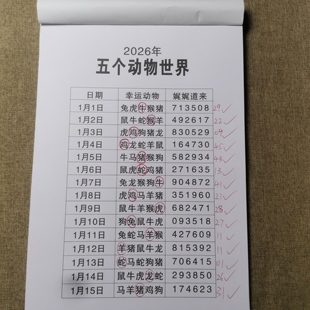 2026年
五个动物世界
日期 幸运动物 娓娓道来
1月1日 兔虎牛猴猪 713508
1月2日 鼠牛蛇猴羊 492617
1月3日 虎鸡狗猪龙 830529
1月4日 鸡龙蛇羊鼠 164730
1月5日 牛马猪猴狗 582934
1月6日 鼠虎蛇鸡猪 271635
1月7日 兔龙猴狗牛 904872
1月8日 虎鸡马羊猪 351960
1月9日 鼠牛羊猴虎 682471
1月10日 狗兔鼠牛虎 093518
1月11日 兔蛇马羊猴 427609
1月12日 羊猪鼠牛龙 815392
1月13日 蛇马蛇狗猪 706415
1月14日 鼠牛虎龙蛇 293850
1月15日 马羊猪鸡狗 174623